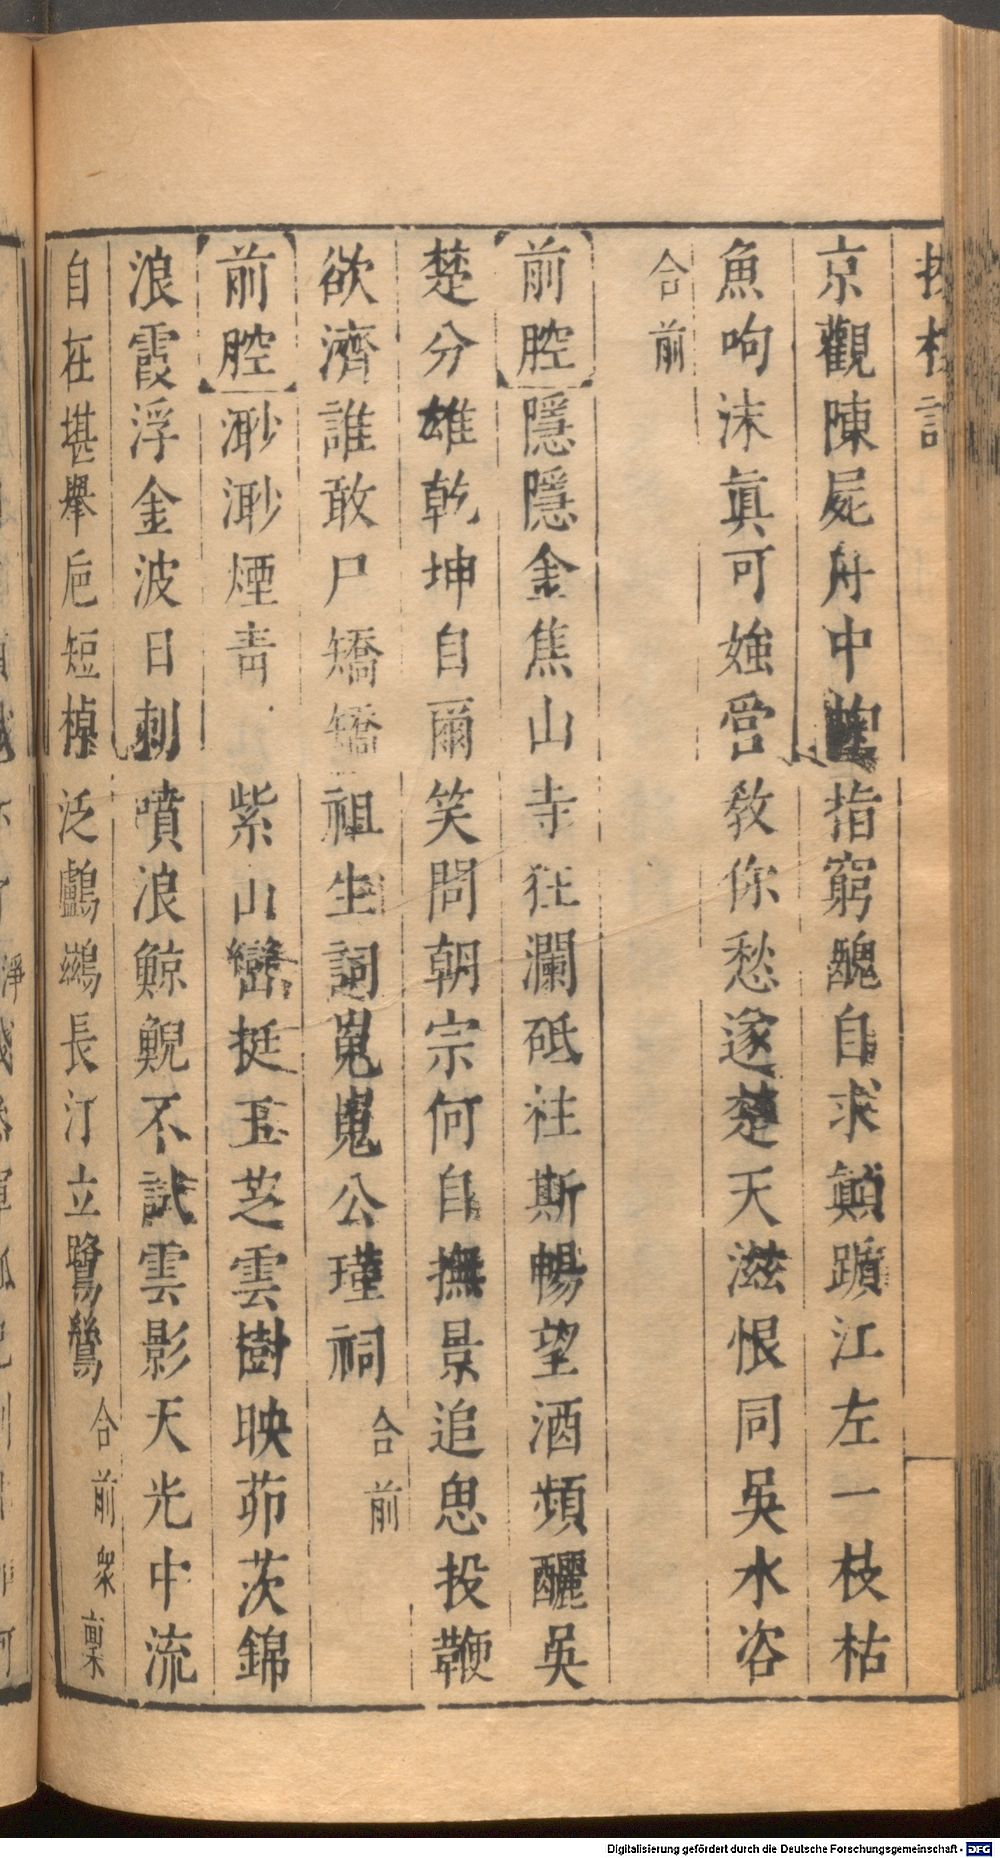 京觀陳屍舟中掬指窮醜自求顛躓江左一枝枯
魚呴沫眞可媸當教你愁遂楚天滋恨同吳水㳫
合前
前腔隱隱金焦山寺狂瀾砥柱斯暢望酒頻釃吳
楚分雄乾坤自爾笑問朝宗何自撫景追思投鞭
欲濟誰敢尸矯矯祖生詞嵬嵬公瑾祠合前
前腔渺渺煙青紫山巒挺玉芝雲樹映茆茨錦
浪霞浮金波日刺噴浪鯨鯢不試雲影天光中流
自在堪舉巵短棹泛鸕鷀長汀立鷺鷥合前衆稟
Digitalisierung gefördert durch die Deutsche Forschungsgemeinschaft - DFG